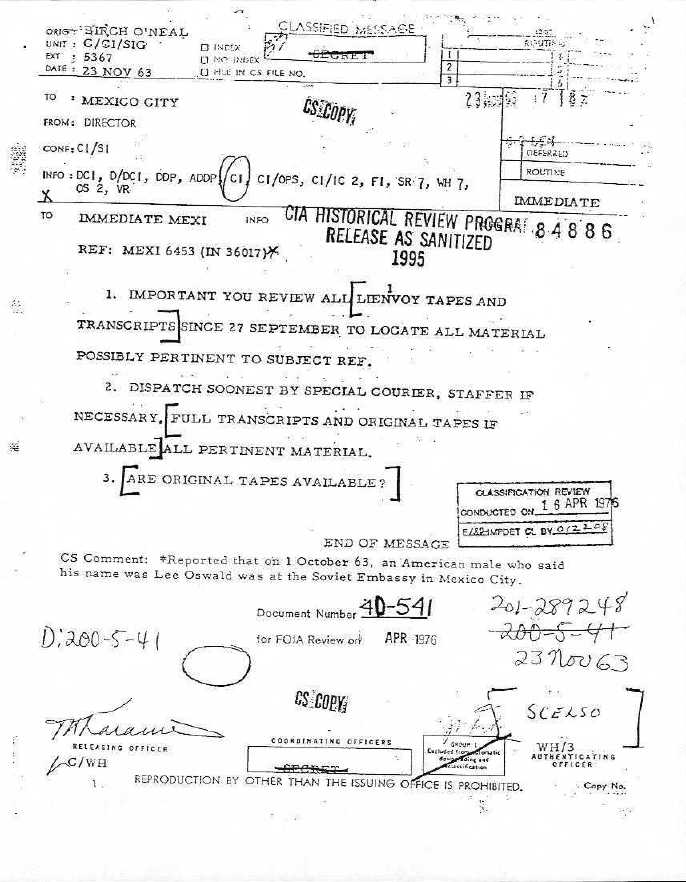 ORIG : BIRCH O'NEAL
UNIT : C/CI/SIG
EXT : 5367
DATE : 23 NOV 63
☐ INDEX
☐ NO INDEX
☐ FILE IN CS FILE NO.
CLASSIFIED MESSAGE
SECRET
ROUTING
1
2
3
4
5
6
TO : MEXICO CITY
FROM: DIRECTOR
CONF: CI/SI
INFO : DCI, D/DCI, DDP, ADDP, CI, CI/OPS, CI/IC 2, FI, SR 7, WH 7,
CS 2, VR
CS COPY
DEFERRED
ROUTINE
IMMEDIATE
X
TO IMMEDIATE MEXI INFO
84886
CIA HISTORICAL REVIEW PROGRAM
RELEASE AS SANITIZED
1995
REF: MEXI 6453 (IN 36017)*
1. IMPORTANT YOU REVIEW ALL [LIENVOY TAPES AND
TRANSCRIPTS] SINCE 27 SEPTEMBER TO LOCATE ALL MATERIAL
POSSIBLY PERTINENT TO SUBJECT REF.
2. DISPATCH SOONEST BY SPECIAL COURIER, STAFFER IF
NECESSARY, [FULL TRANSCRIPTS AND ORIGINAL TAPES IF
AVAILABLE] ALL PERTINENT MATERIAL.
3. [ARE ORIGINAL TAPES AVAILABLE?]
CLASSIFICATION REVIEW
CONDUCTED ON 16 APR 1976
E/82 IMPDET CL BY 012208
END OF MESSAGE
CS Comment: *Reported that on 1 October 63, an American male who said
his name was Lee Oswald was at the Soviet Embassy in Mexico City.
Document Number 40-541
for FOIA Review on APR 1976
D:200-5-41
201-289248
200-5-41
23 Nov 63
CS COPY
SCELSO
RELEASING OFFICER
C/WH
COORDINATING OFFICERS
SECRET
GROUP 1
Excluded from automatic
downgrading and
declassification
WH/3
AUTHENTICATING
OFFICER
REPRODUCTION BY OTHER THAN THE ISSUING OFFICE IS PROHIBITED.
Copy No.